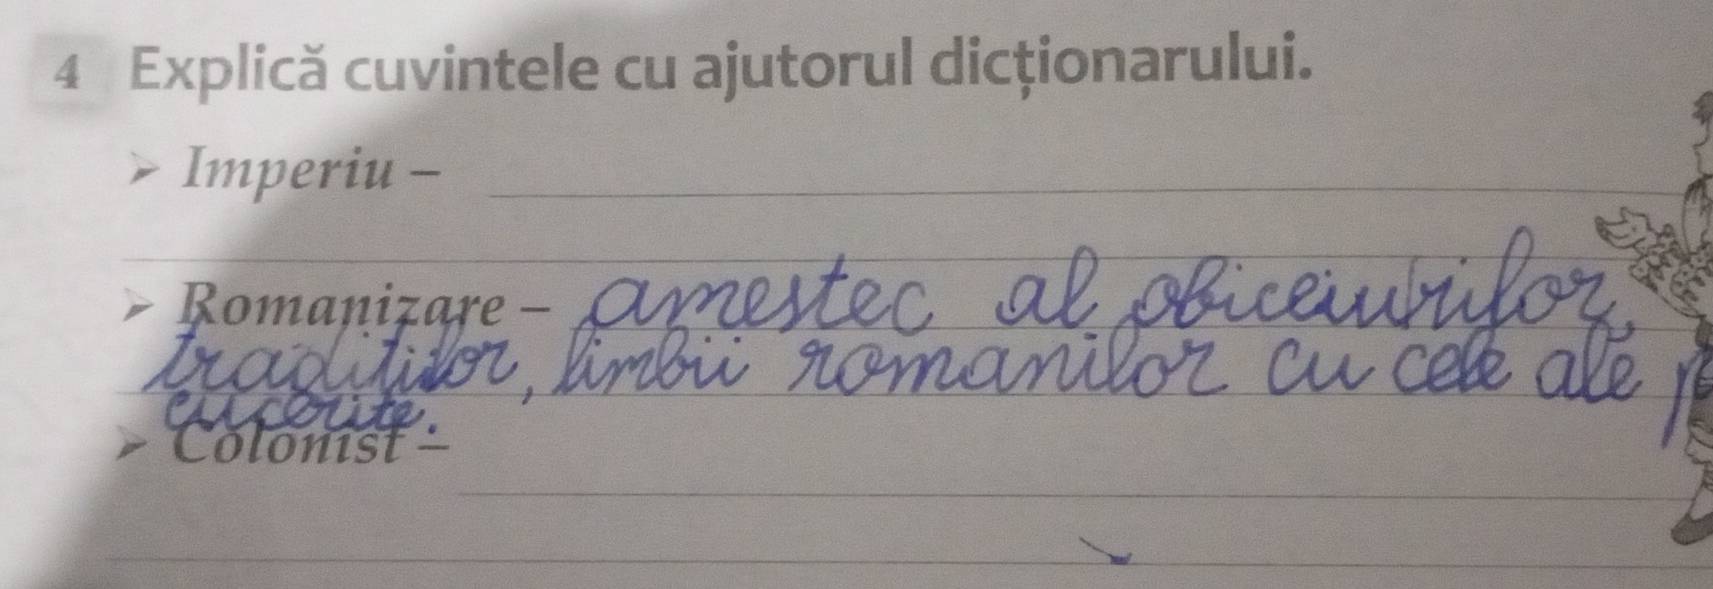 4 Explică cuvintele cu ajutorul dicționarului.
➢ Imperiu –
➢ Romanizare – amestec al obiceiurilor,
tradițiilor, limbii romanilor cu cele ale
cucerite.
➢ Colonist –